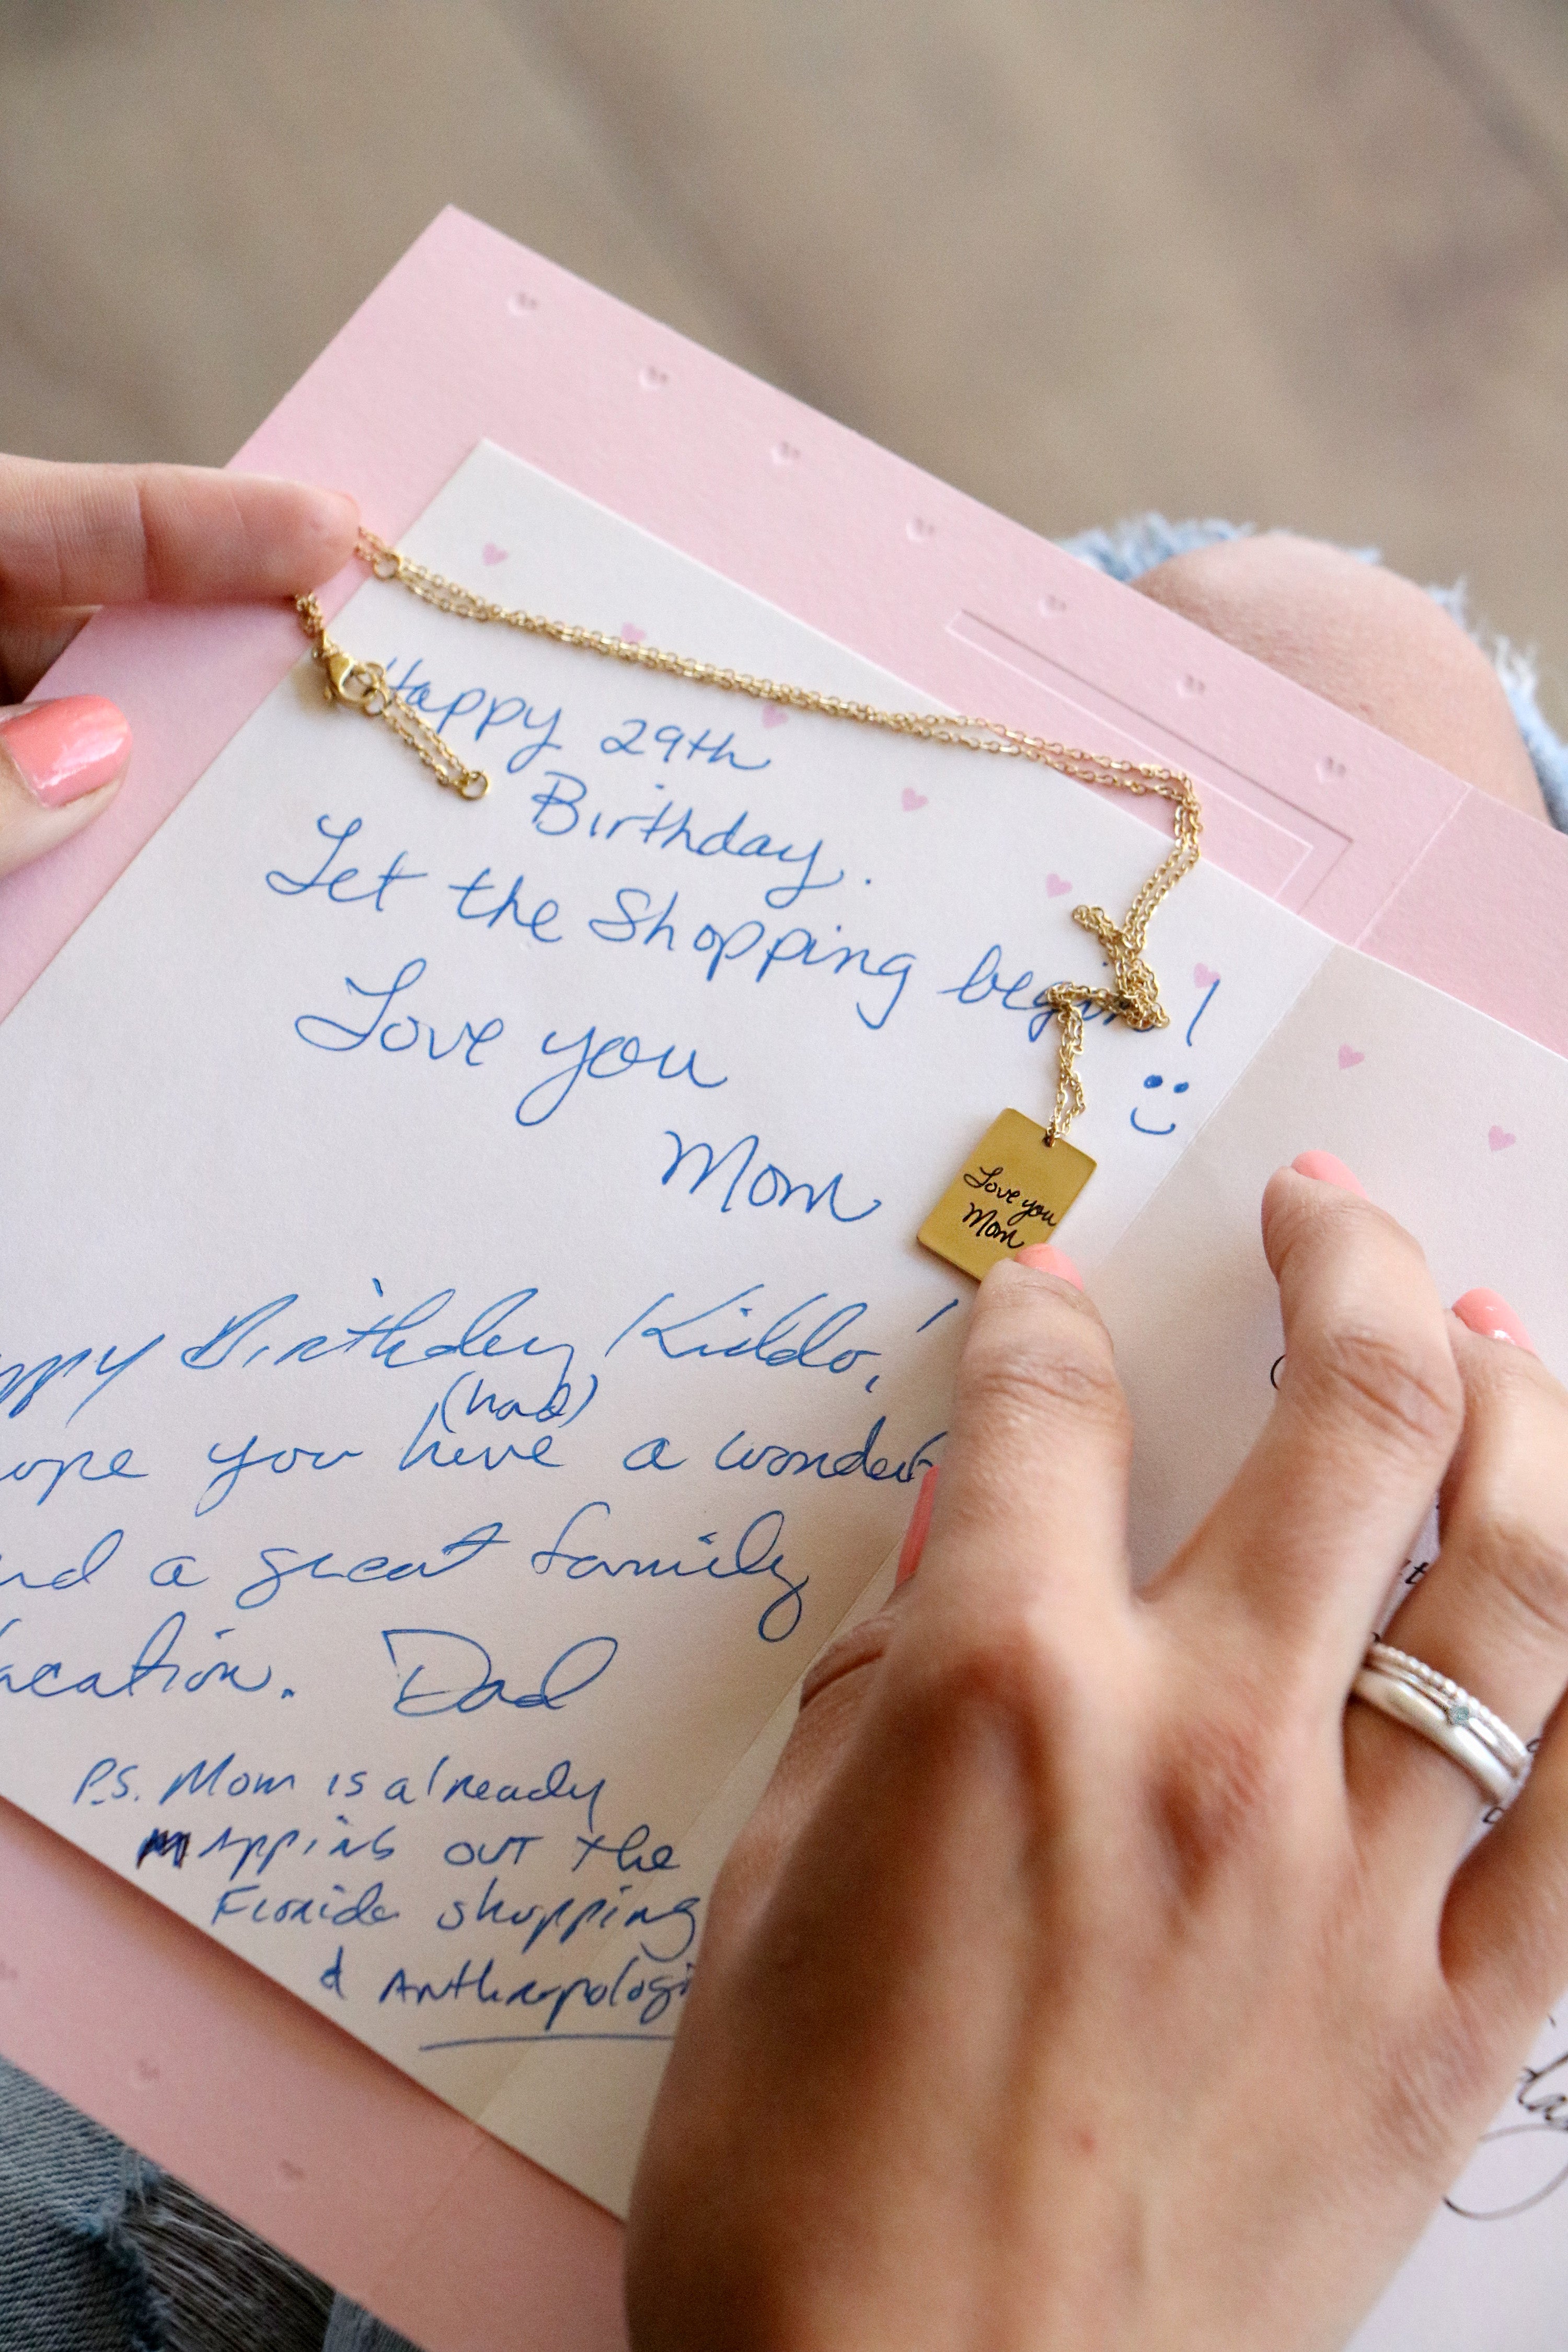 Happy 29th
Birthday.
Let the Shopping begin!
Love you
Mom
Love you
Mom
ppy Birthday Kiddo,!
(had)
ope you have a wonder
nd a great family
acation. Dad
P.S. Mom is already
mapping out the
Florida shopping
& Anthropologi